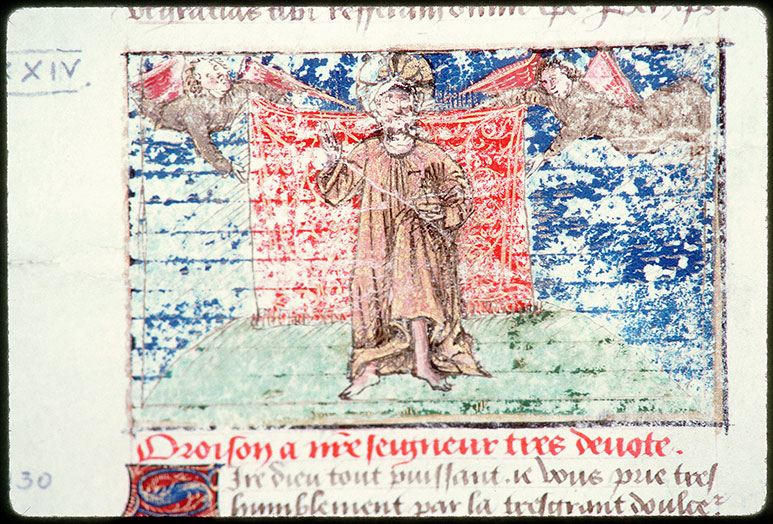 XXIV.
Oroison a nr̃e seigneur tres deuote.
Sire dieu tout puissant. ie vous prie tres
humblement par la tresgrant doulce
30